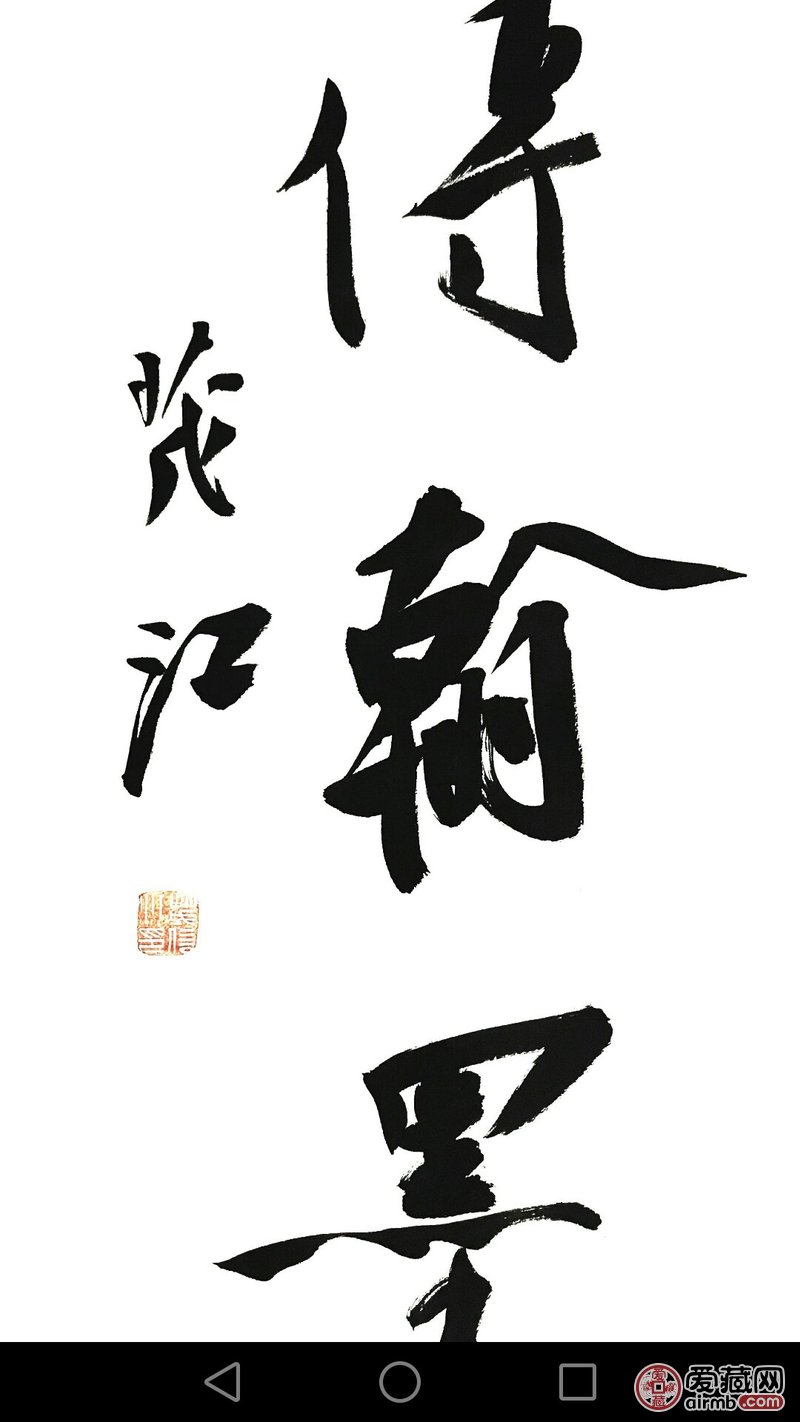 傳翰墨
茂江
爱藏网
airmb.com